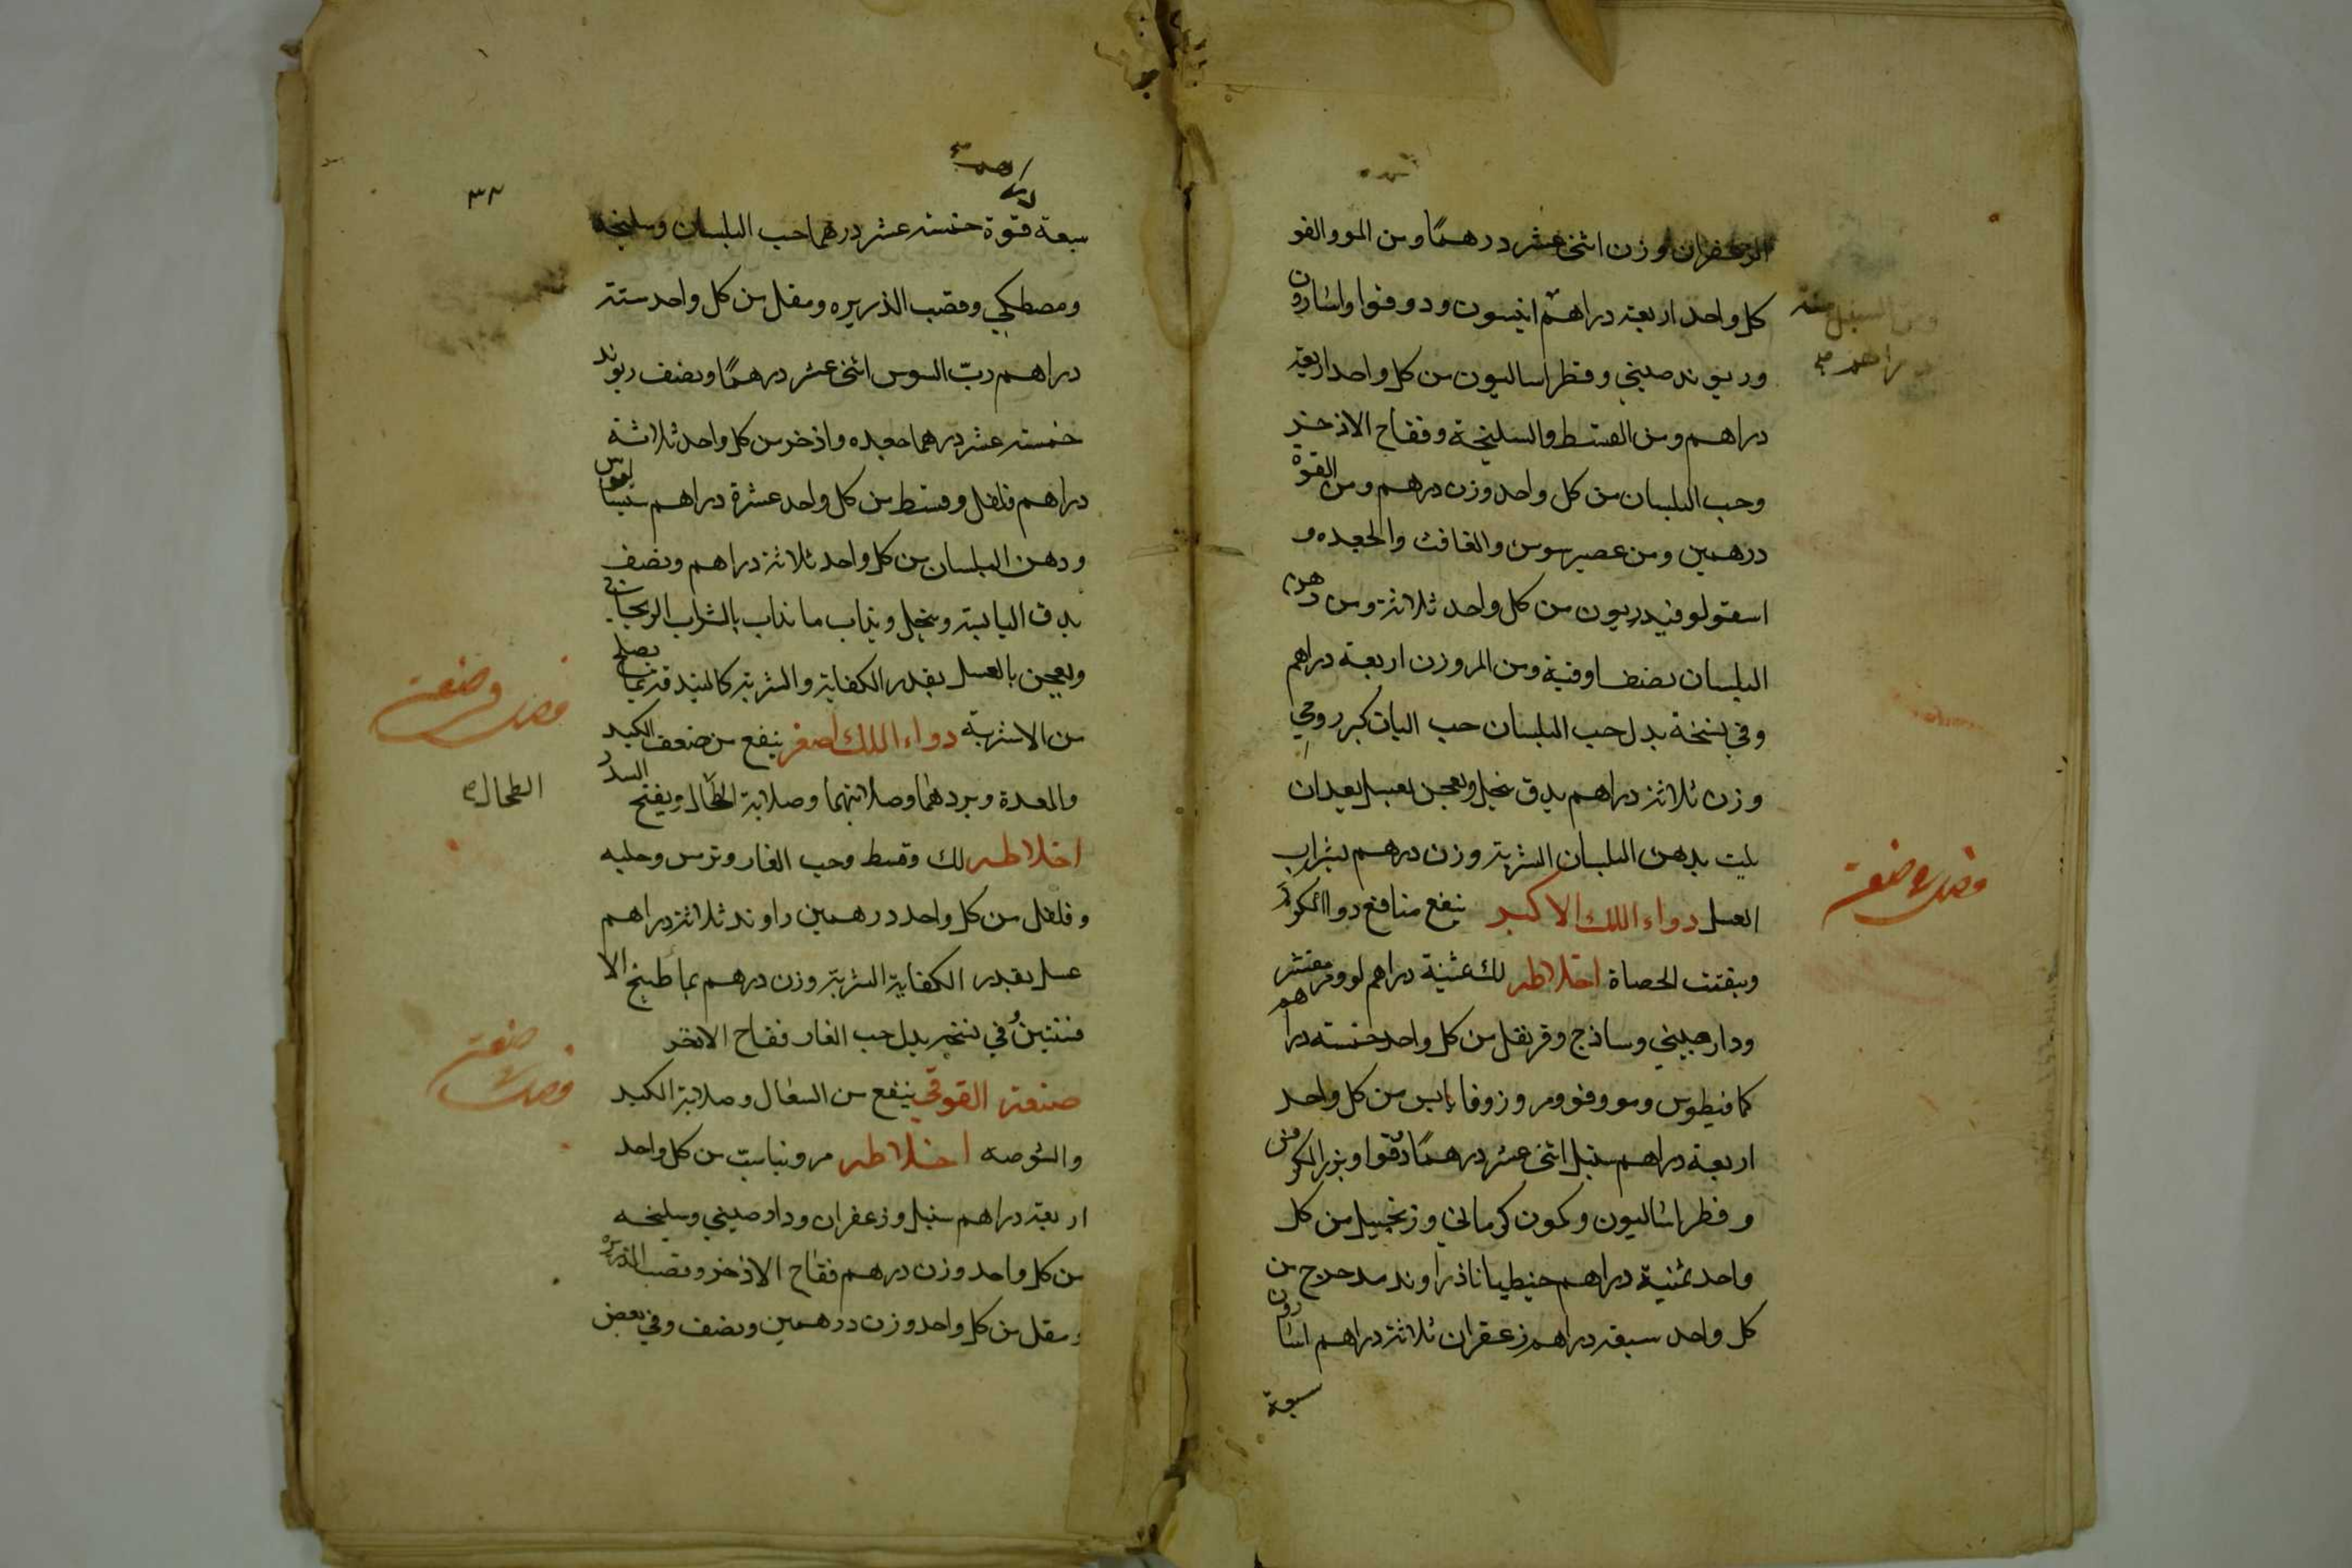 الزعفران وزن اثنى عشر درهمًا ومن المو والفو
كل واحد اربعة دراهم انيسون ودوقوا واسارون
وريوند صيني وفطراساليون من كل واحد اربعة
دراهم ومن القسط والسليخة وفقاح الاذخر
وحب البلسان من كل واحد وزن درهم ومن القوة
درهمين ومن عصير سوس والغافث والجعده و
اسقولوقندريون من كل واحد ثلاثة ومن دهن
البلسان نصف اوقية ومن المر وزن اربعة دراهم
وفي نسخة بدل حب البلسان حب البان كبر رومي
وزن ثلاثة دراهم يدق ينخل ويعجن بعسل بعد ان
يلت بدهن البلسان الشربة وزن درهم بشراب
العسل دواء اللك الاكبر ينفع منافع دواالكركم
ويفتت الحصاة اخلاطه لك ثمنية دراهم لوز مر مقشر
ودارصيني وساذج وقرنفل من كل واحد خمسة دراهم
كمافيطوس ومو وفو ومر وزوفا يابس من كل واحد
اربعة دراهم سنبل اثنى عشر درهمًا دقوا وبزر الكرفس
وفطراساليون وكمون كرماني وزنجبيل من كل
واحد ثمنية دراهم جنطيانا زراوند مدحرج من
كل واحد سبعة دراهم زعفران ثلاثة دراهم اسارون
سبعة
ومن السنبل ستة
دراهم صح
فصل وصنعة
٣٢
سبعة فوة خمسة عشر درهما حب البلسان وسليخة
ومصطكي وقصب الذريره ومقل من كل واحد ستة
دراهم ربّ السوس اثنى عشر درهمًا ونصف ريوند
خمسة عشر درهما جعده واذخر من كل واحد ثلاثة
دراهم فلفل وقسط من كل واحد عشرة دراهم سيساليوس
ودهن البلسان من كل واحد ثلاثة دراهم ونصف
يدق اليابسة وينخل ويذاب ما يذاب بالشراب الريحاني
ويعجن بالعسل بقدر الكفاية والشربة كالبندقة بما يصلح
من الاشربة دواء اللك اصغر ينفع من ضعف الكبد
والمعدة وبردهما وصلابتهما وصلابة الطحال ويفتح السدد
اخلاطه لك وقسط وحب الغار وترمس وحلبه
وفلفل من كل واحد درهمين راوند ثلاثة دراهم
عسل بقدر الكفاية الشربة وزن درهم بما طبيخ الا
فسنتين وفي نسخة بدل حب الغار فقاح الاذخر
صنعة القوقي ينفع من السعال وصلابة الكبد
والشوصه اخلاطه مر ونباست من كل واحد
اربعة دراهم سنبل وزعفران ودارصيني وسليخه
من كل واحد وزن درهم فقاح الاذخر وقصب الذريره
ومقل من كل واحد وزن درهمين ونصف وفي بعض
فصل وصنعة
الطحال
فصل صنعة